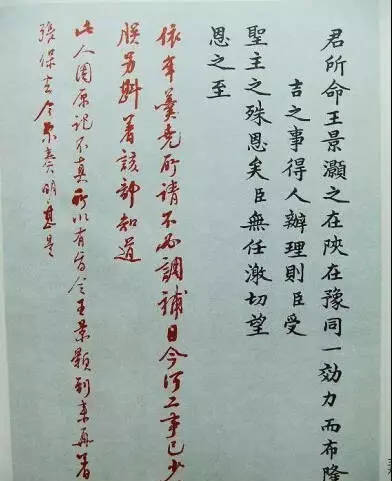 君所命王景灝之在陝在豫同一効力而布隆
吉之事得人辦理則臣受
聖主之殊恩矣臣無任激切望
恩之至
依年羹堯所請不必調補目今河工事已少
朕另斟著該部知道
此人因原記不真所以有旨今王景顥到來再著
張保去今不奏明甚是